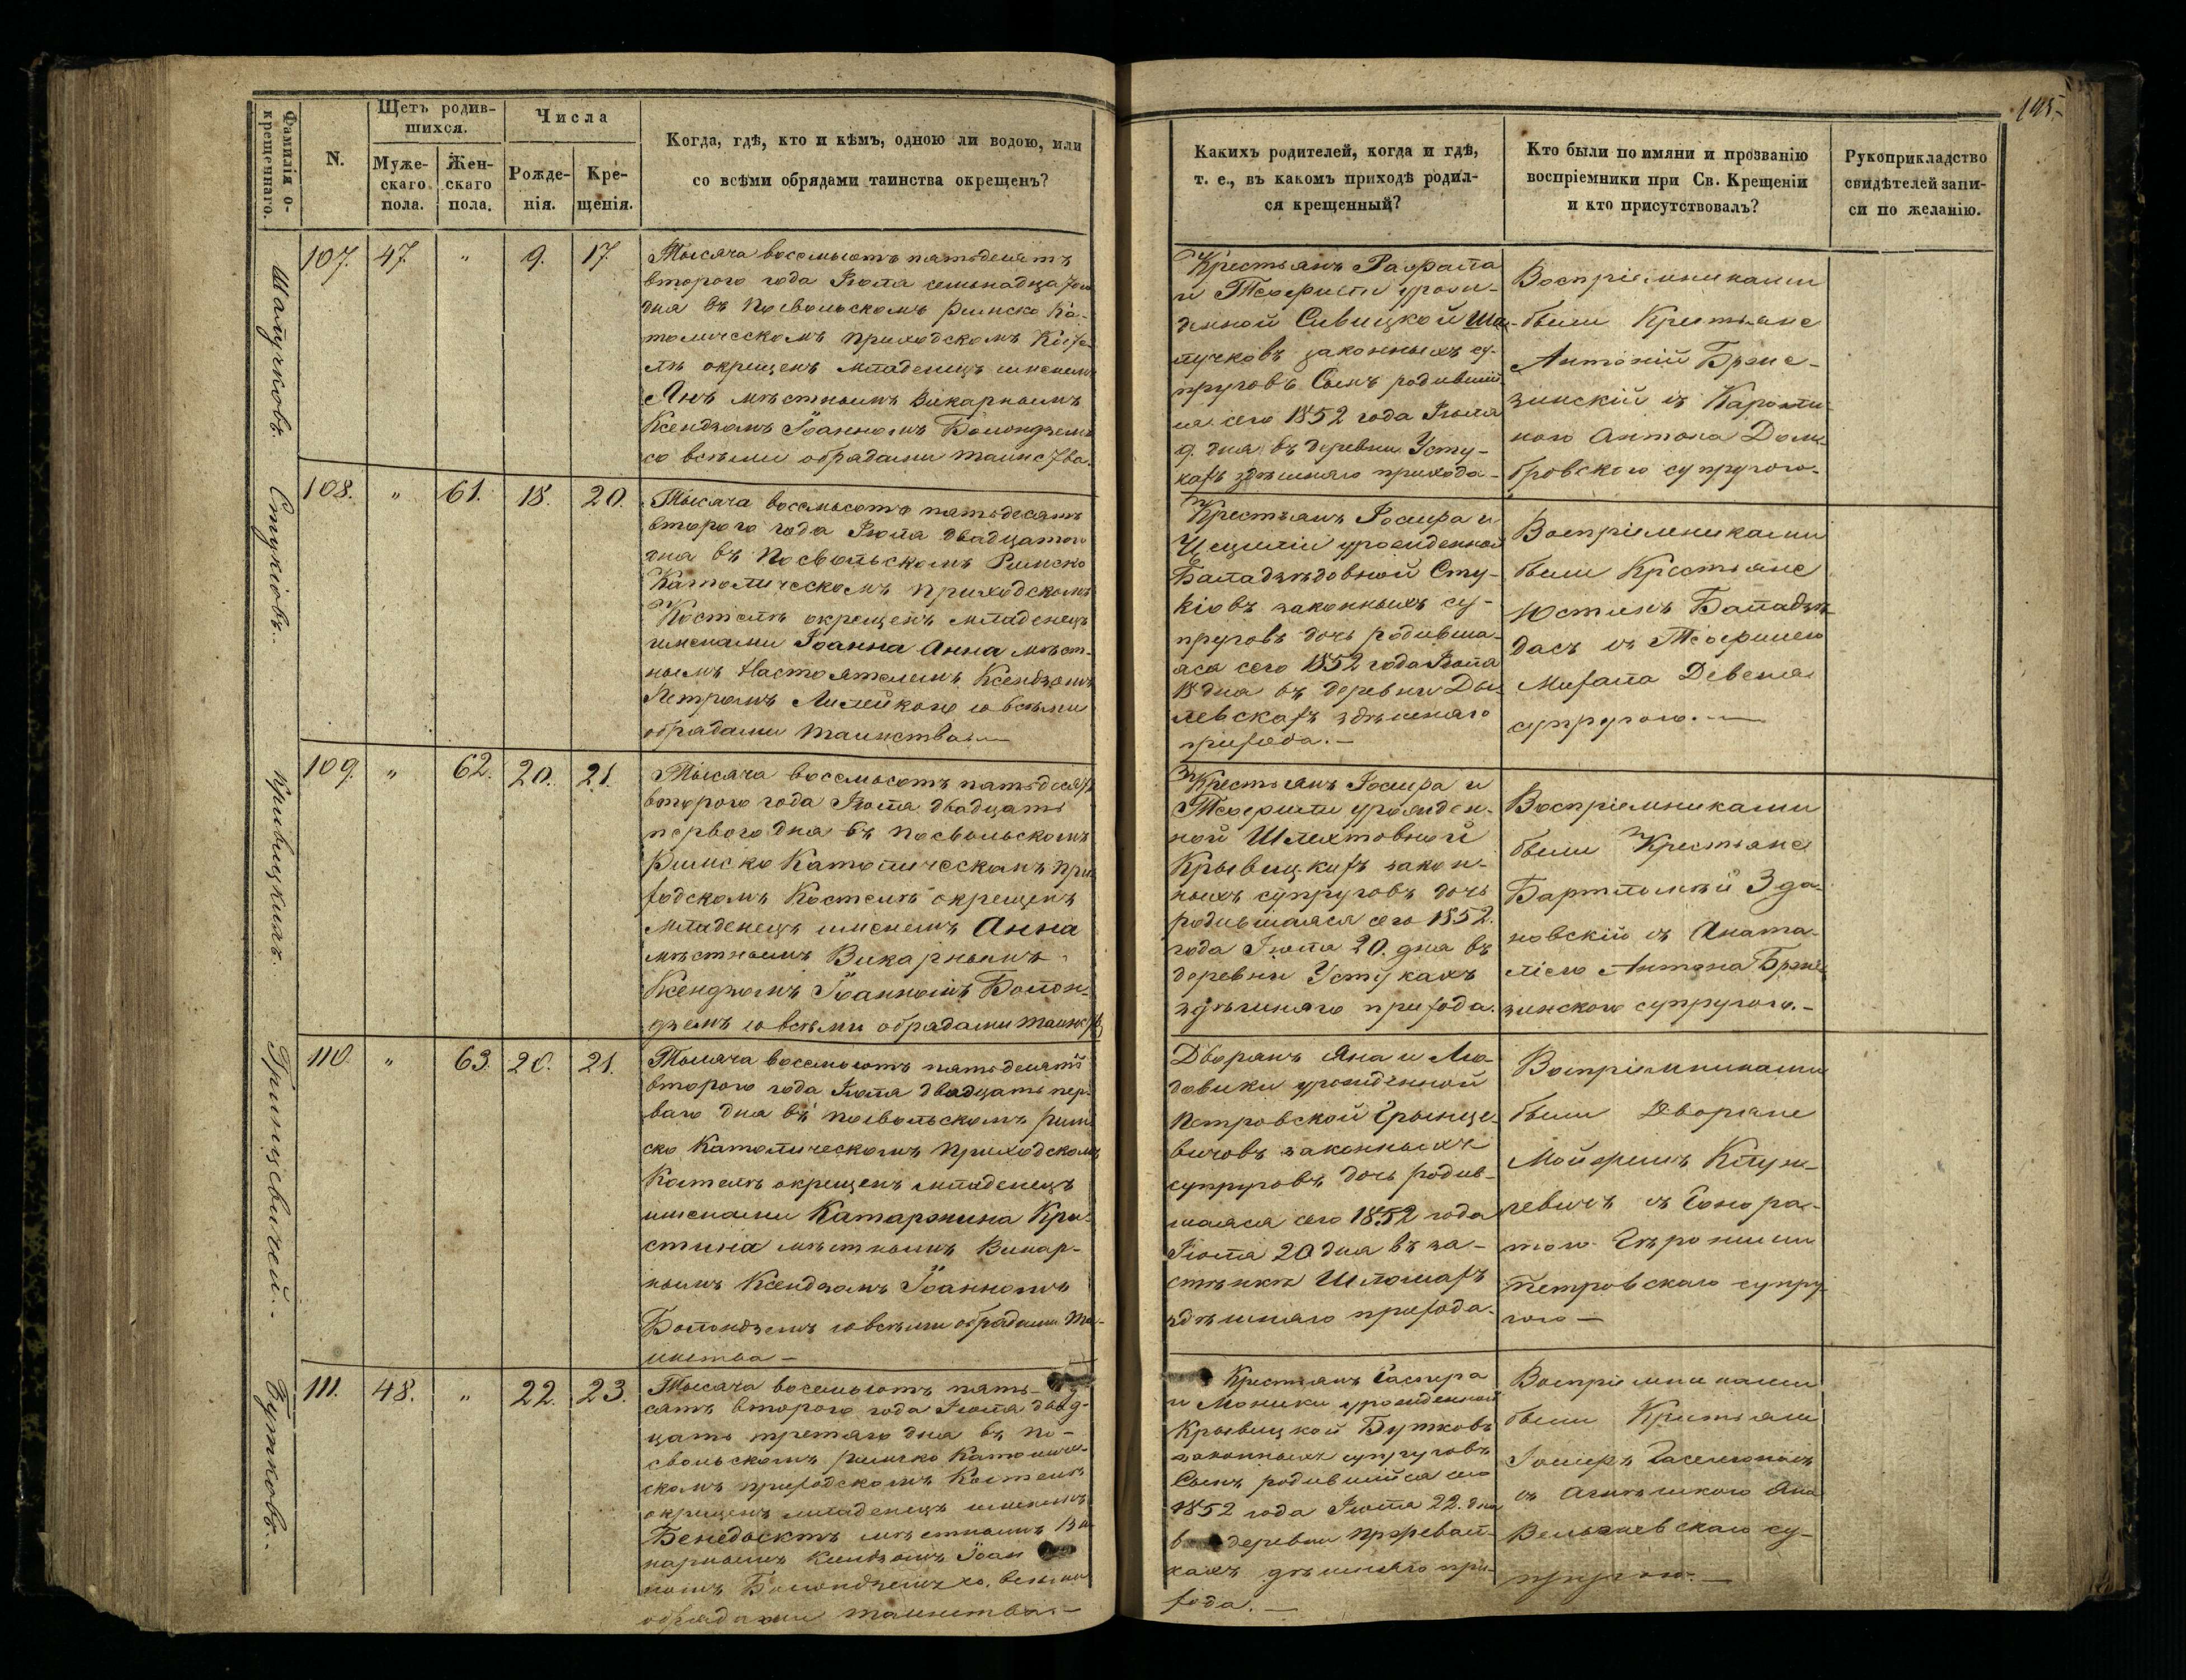 195
Фамилія о-
крещеннаго.
N.
Щетъ родив-
шихся.
Муже-
скаго
пола.
Жен-
скаго
пола.
Числа
Рожде-
нія.
Кре-
щенія.
Когда, гдѣ, кто и кѣмъ, одною ли водою, или
со всѣми обрядами таинства окрещенъ?
Какихъ родителей, когда и гдѣ,
т. е., въ какомъ приходѣ родил-
ся крещенный?
Кто были по имяни и прозванію
воспріемники при Св. Крещеніи
и кто присутствовалъ?
Рукоприкладство
свидѣтелей запи-
си по желанію.
Шапучковъ.
107. 47. " 9. 17.
Тысяча восемьсотъ пятьдесятъ
второго года Іюля семьнадцатого
дня въ Посвольскомъ Римско Ка-
толическомъ приходскомъ Косте-
лѣ окрещенъ младенецъ именемъ
Янъ мѣстнымъ Викарнымъ
Ксендзомъ Іоанномъ Болондземъ
со всѣми обрадами таинства.
Крестьянъ Рафала
и Теофили урож-
денной Сивицкой Ша-
пучковъ законныхъ су-
пруговъ Сынъ родивший-
ся сего 1852 года Іюля
9. дня въ деревни Усту-
кахъ здѣшняго прихода
Воспріемниками
были Крестьяне
Антоній Брже-
зинскій съ Кароли-
ною Антона Дом-
бровского супругою.
Стукіовъ.
108. " 61. 18. 20.
Тысяча восемьсотъ пятьдесятъ
второго года Іюля двадцатого
дня въ Посвольскомъ Римско
Католическомъ приходскомъ
Костелѣ окрещенъ младенецъ
именами Іоанна Анна мѣст-
нымъ Настоятелемъ Ксендзомъ
Петромъ Лилейкою со всѣми
обрадами таинства.
Крестьянъ Іосифа и
Цециліи урожденной
Баладзѣдовной Сту-
кіовъ законныхъ су-
пруговъ дочь родивша-
яся сего 1852 года Іюля
18 дня въ деревни Ды-
левскахъ здѣшняго
прихода.
Воспріемниками
были Крестьяне
Юстинъ Баладзѣ-
дасъ съ Теофилею
Михала Девеня
супругою.
Кривицкихъ.
109. " 62. 20. 21.
Тысяча восемьсотъ пятьдесятъ
второго года Іюля двадцать
первого дня въ Посвольскомъ
Римско Католическомъ при-
ходскомъ Костелѣ окрещенъ
младенецъ именемъ Анна
мѣстнымъ Викарнымъ
Ксендзомъ Іоанномъ Болон-
дземъ со всѣми обрадами таинств.
Крестьянъ Іосифа и
Теофили урожден-
ной Шлехтовной
Крывицкихъ закон-
ныхъ супруговъ дочь
родившаяся сего 1852.
года Іюля 20. дня въ
деревни Устукахъ
здѣшняго прихода.
Воспріемниками
были Крестьяне
Бартломѣй Зда-
новскій съ Аната-
ліею Антона Брже-
зинского супругою.
Гринцевичей.
110. " 63. 20. 21.
Тысяча восемьсотъ пятьдесятъ
второго года Іюля двадцать пер-
ваго дня въ Посвольскомъ Рим-
ско Католическомъ приходскомъ
Костелѣ окрещенъ младенецъ
именами Катаржина Кри-
стина мѣстнымъ Викар-
нымъ Ксендзомъ Іоанномъ
Болондземъ со всѣми обрадами та-
инства
Дворянъ Яна и Лю-
довики урожденной
Петровской Грынце-
вичовъ законныхъ
супруговъ дочь родив-
шаяся сего 1852 года
Іюля 20 дня въ за-
стѣнкѣ Шломахъ
здѣшняго прихода.
Воспріемниками
были Дворяне
съ Гонора-
тою Гѣронима
Петровскаго супру-
гою
Бутковъ.
111. 48. " 22. 23.
Тысяча восемьсотъ пять-
сятъ второго года Іюля двад-
цать третяго дня въ По-
свольскомъ Римско Католиче-
скомъ приходскомъ Костелѣ
окрещенъ младенецъ именемъ
Бенедыктъ мѣстнымъ Ви-
карнымъ Ксендзомъ Іоан
номъ Болондземъ со всѣми
обрадами таинства
Крестьянъ Гаспера
и Моники урожденной
Крывицкой Бутковъ
законныхъ супруговъ
Сынъ родившийся сего
1852 года Іюля 22. дня
в деревни
кахъ здѣшняго при-
хода.
Воспріемниками
были Крестьяне
Іосифъ
съ Агнѣшкою
супругою.